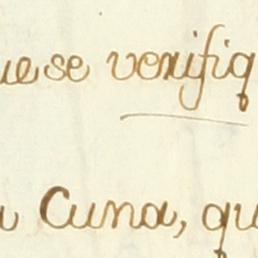 ue se verifiq
a Cuna, qu